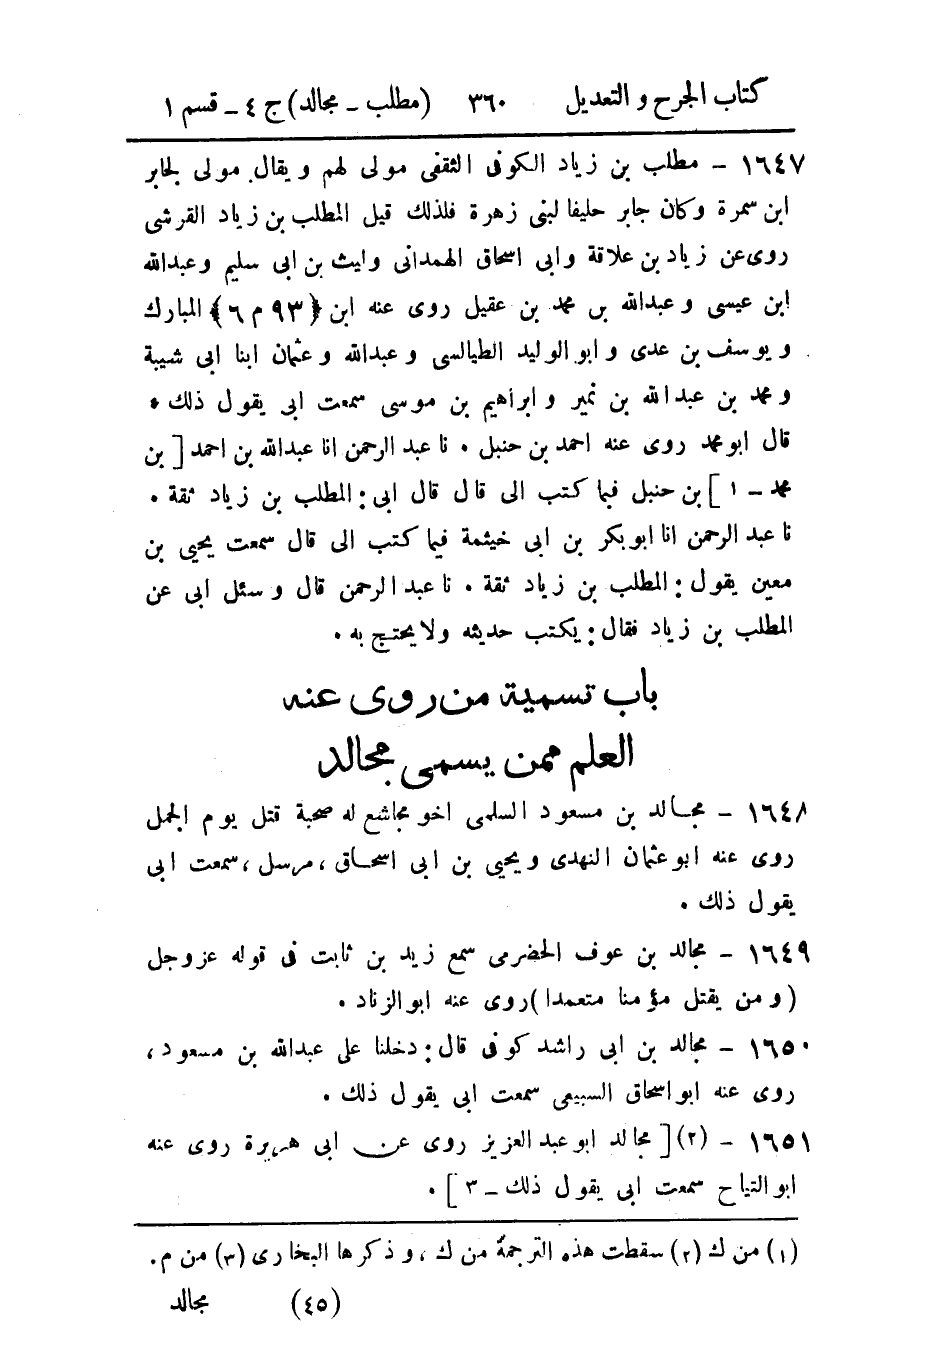 كتاب الجرح و التعديل ٣٦٠ (مطلب - مجالد) ج ٤ - قسم ١
١٦٤٧ - مطلب بن زياد الكوفى الثقفى مولى لهم و يقال مولى لجابر
ابن سمرة وكان جابر حليفا لبنى زهرة فلذلك قيل المطلب بن زياد القرشى
روى عن زياد بن علاقة وابى اسحاق الهمدانى وليث بن ابى سليم وعبدالله
ابن عيسى و عبدالله بن محمد بن عقيل روى عنه ابن ﴿٩٣ م ٦﴾ المبارك
و يوسف بن عدى و ابو الوليد الطيالسى و عبدالله و عثمان ابنا ابى شيبة
و محمد بن عبدالله بن نمير و ابراهيم بن موسى سمعت ابى يقول ذلك .
قال ابو محمد روى عنه احمد بن حنبل . نا عبد الرحمن انا عبدالله بن احمد [ بن
محمد - ١ ] بن حنبل فيما كتب الى قال قال ابى : المطلب بن زياد ثقة .
نا عبد الرحمن انا ابوبكر بن ابى خيثمة فيما كتب الى قال سمعت يحيى بن
معين يقول : المطلب بن زياد ثقة . نا عبد الرحمن قال و سئل ابى عن
المطلب بن زياد فقال : يكتب حديثه ولا يحتج به .
باب تسمية من روى عنه
العلم ممن يسمى مجالد
١٦٤٨ - مجالد بن مسعود السلمى اخو مجاشع له صحبة قتل يوم الجمل
روى عنه ابو عثمان النهدى و يحيى بن ابى اسحاق ، مرسل ، سمعت ابى
يقول ذلك .
١٦٤٩ - مجالد بن عوف الحضرمى سمع زيد بن ثابت فى قوله عزوجل
( و من يقتل مؤمنا متعمدا ) روى عنه ابو الزناد .
١٦٥٠ - مجالد بن ابى راشد كوفى قال : دخلنا على عبدالله بن مسعود ،
روى عنه ابو اسحاق السبيعى سمعت ابى يقول ذلك .
١٦٥١ - (٢) [ مجالد ابو عبد العزيز روى عن ابى هريرة روى عنه
ابو التياح سمعت ابى يقول ذلك - ٣ ] .
(١) من ك (٢) سقطت هذه الترجمة من ك ، و ذكرها البخارى (٣) من م .
(٤٥) مجالد